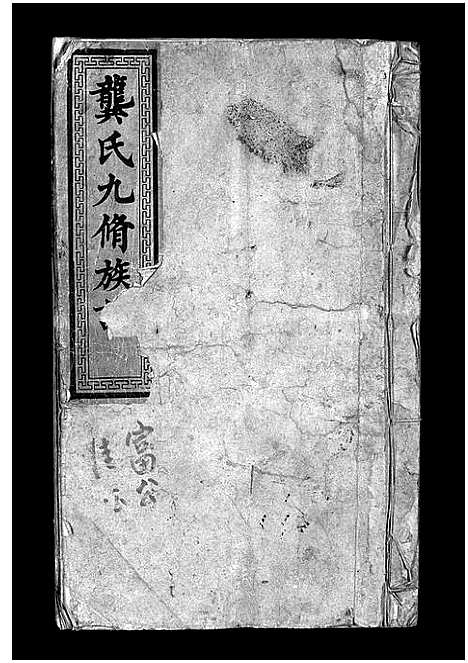 龔氏九脩族
富公